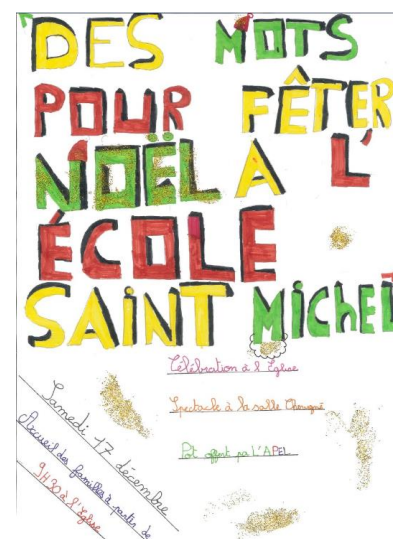 DES MOTS
POUR FÊTER
NOËL A L'
ÉCOLE
SAINT MICHEL
Célébration à l'Eglise
Spectacle à la salle
Pot offert pa L'APEL
Samedi 17 décembre
Accueil des familles à partir de
9H30 à l'Eglise